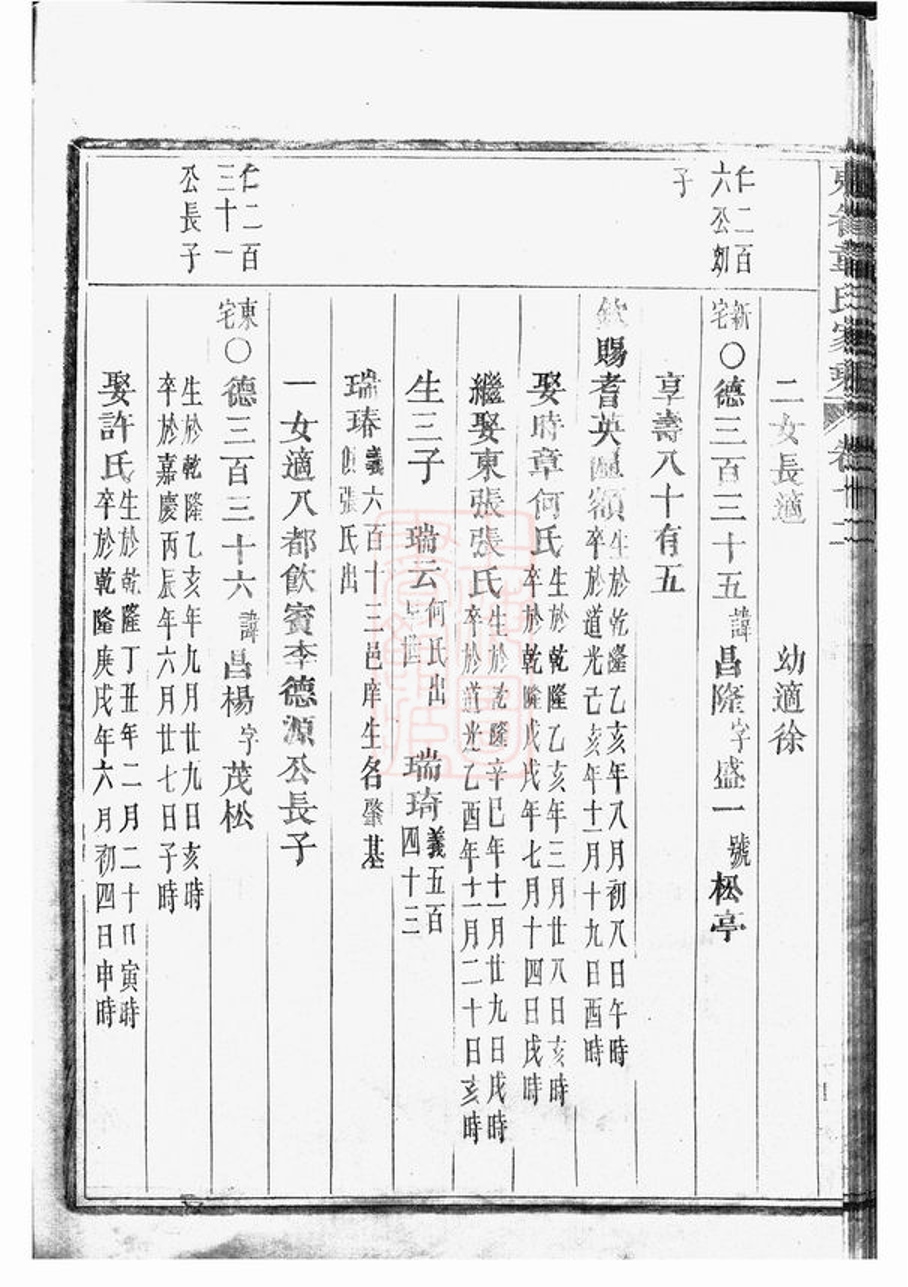 氏家乘 卷十二
二女長適 幼適徐
仁二百
六公幼
子
新宅○德三百三十五諱昌隆字盛一號松亭
享壽八十有五
欽賜耆英匾額生於乾隆乙亥年八月初八日午時
卒於道光己亥年十一月十九日酉時
娶時章何氏生於乾隆乙亥年三月廿八日亥時
卒於乾隆戊戌年七月十四日戌時
繼娶東張張氏生於乾隆辛巳年十一月廿九日戌時
卒於道光乙酉年十一月二十日亥時
生三子 瑞云何氏出 瑞琦義五百
四十三
瑞瑃義六百十三邑庠生名肇基
張氏出
一女適八都飲賓李德源公長子
仁二百
三十一
公長子
東宅○德三百三十六諱昌楊字茂松
生於乾隆乙亥年九月廿九日亥時
卒於嘉慶丙辰年六月廿七日子時
娶許氏生於乾隆丁丑年二月二十日寅時
卒於乾隆庚戌年六月初四日申時